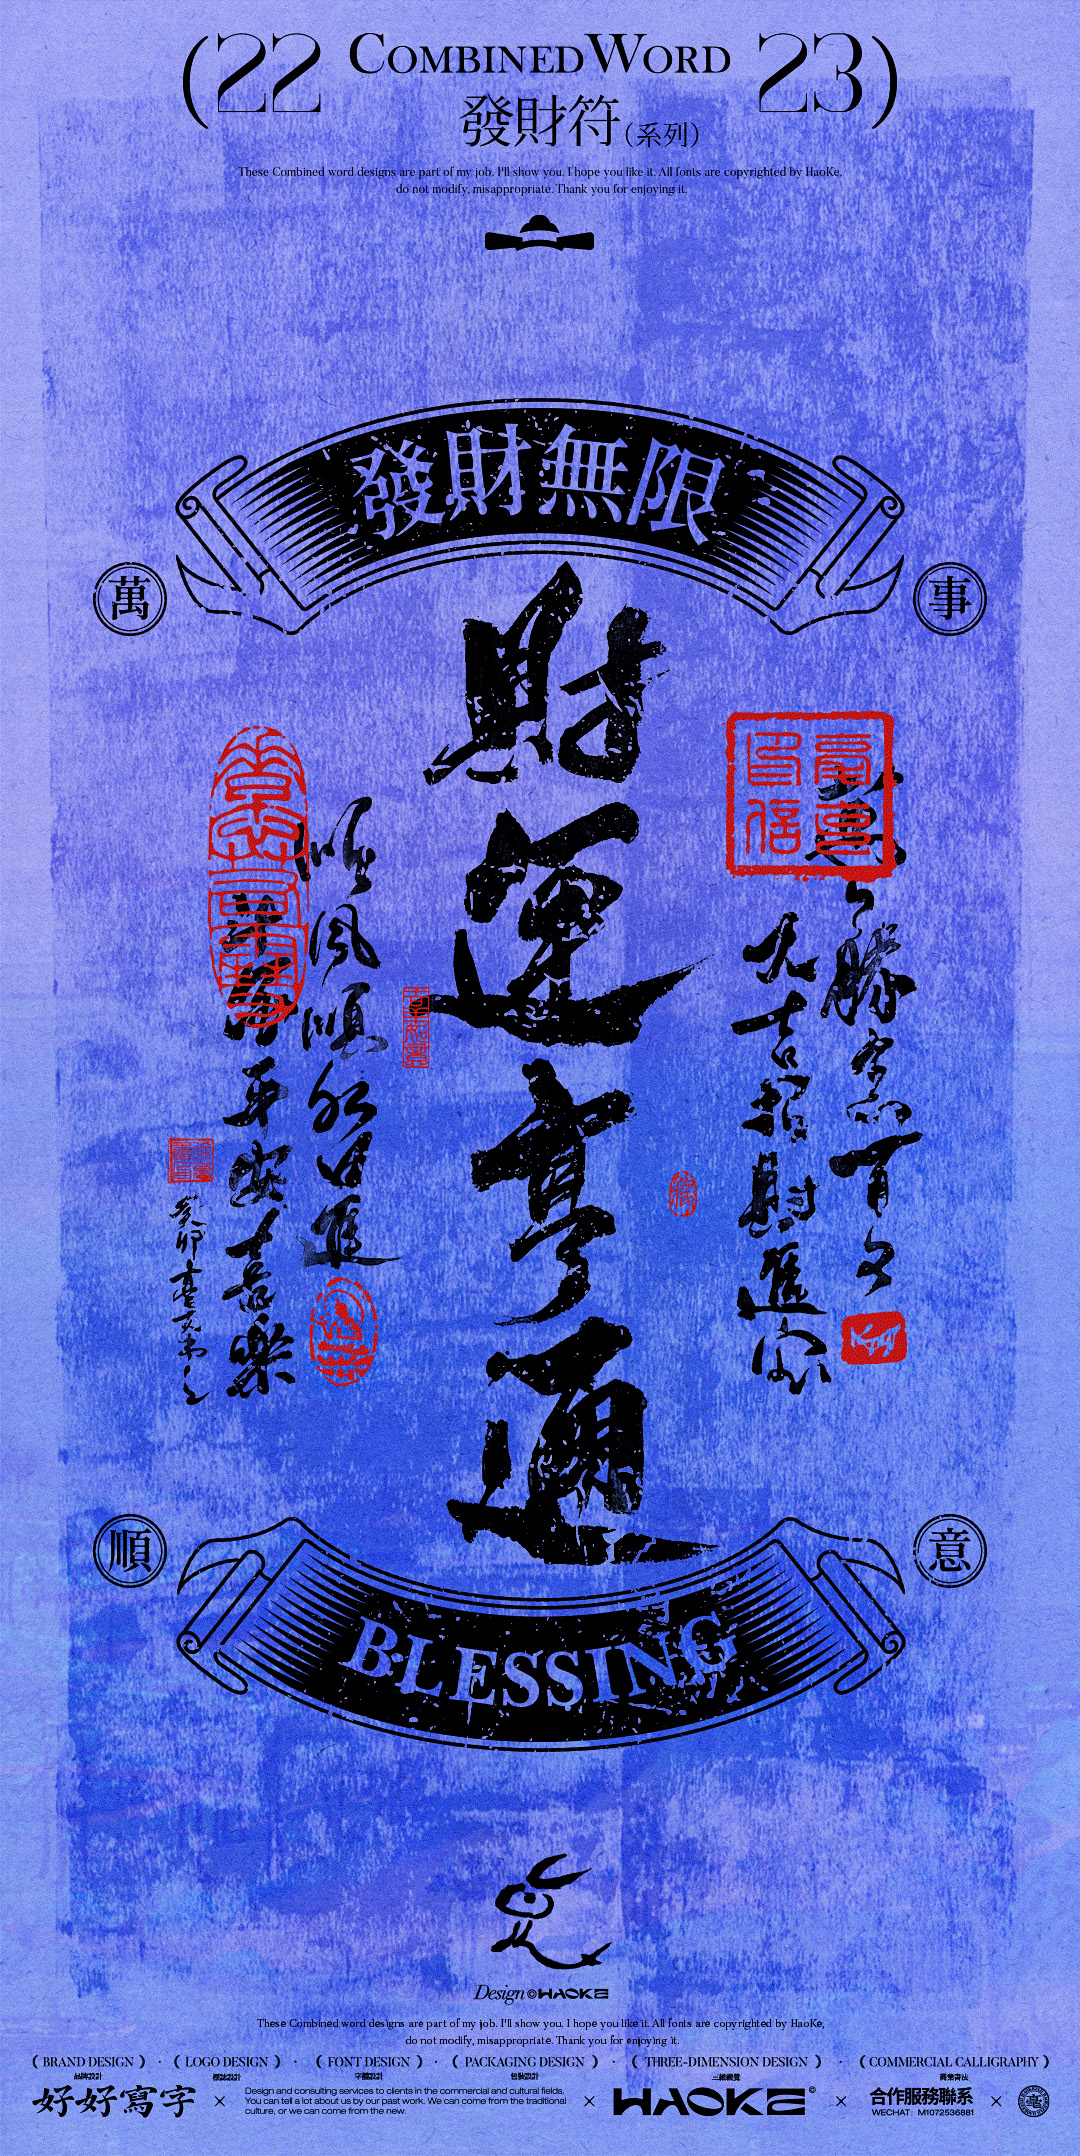 (22 COMBINEDWORD 23)
發財符(系列)
These Combined word designs are part of my job. I'll show you. I hope you like it. All fonts are copyrighted by HaoKe.
do not modify, misappropriate. Thank you for enjoying it.
發財無限
萬
事
財運亨通
大吉招財進寶
順風順水日進
平安喜樂
癸卯
順
意
BLESSING
Design©HAOKE
These Combined word designs are part of my job. I'll show you. I hope you like it. All fonts are copyrighted by HaoKe,
do not modify, misappropriate. Thank you for enjoying it.
( BRAND DESIGN ) · ( LOGO DESIGN ) · ( FONT DESIGN ) · ( PACKAGING DESIGN ) · ( THREE-DIMENSION DESIGN ) · ( COMMERCIAL CALLIGRAPHY )
品牌設計 標誌設計 字體設計 包裝設計 三維視覺 商業書法
好好寫字 ×
Design and consulting services to clients in the commercial and cultural fields.
You can tell a lot about us by our past work. We can come from the traditional
culture, or we can come from the new.
× HAOKE© ×
合作服務聯系
WECHAT: M1072536881
×